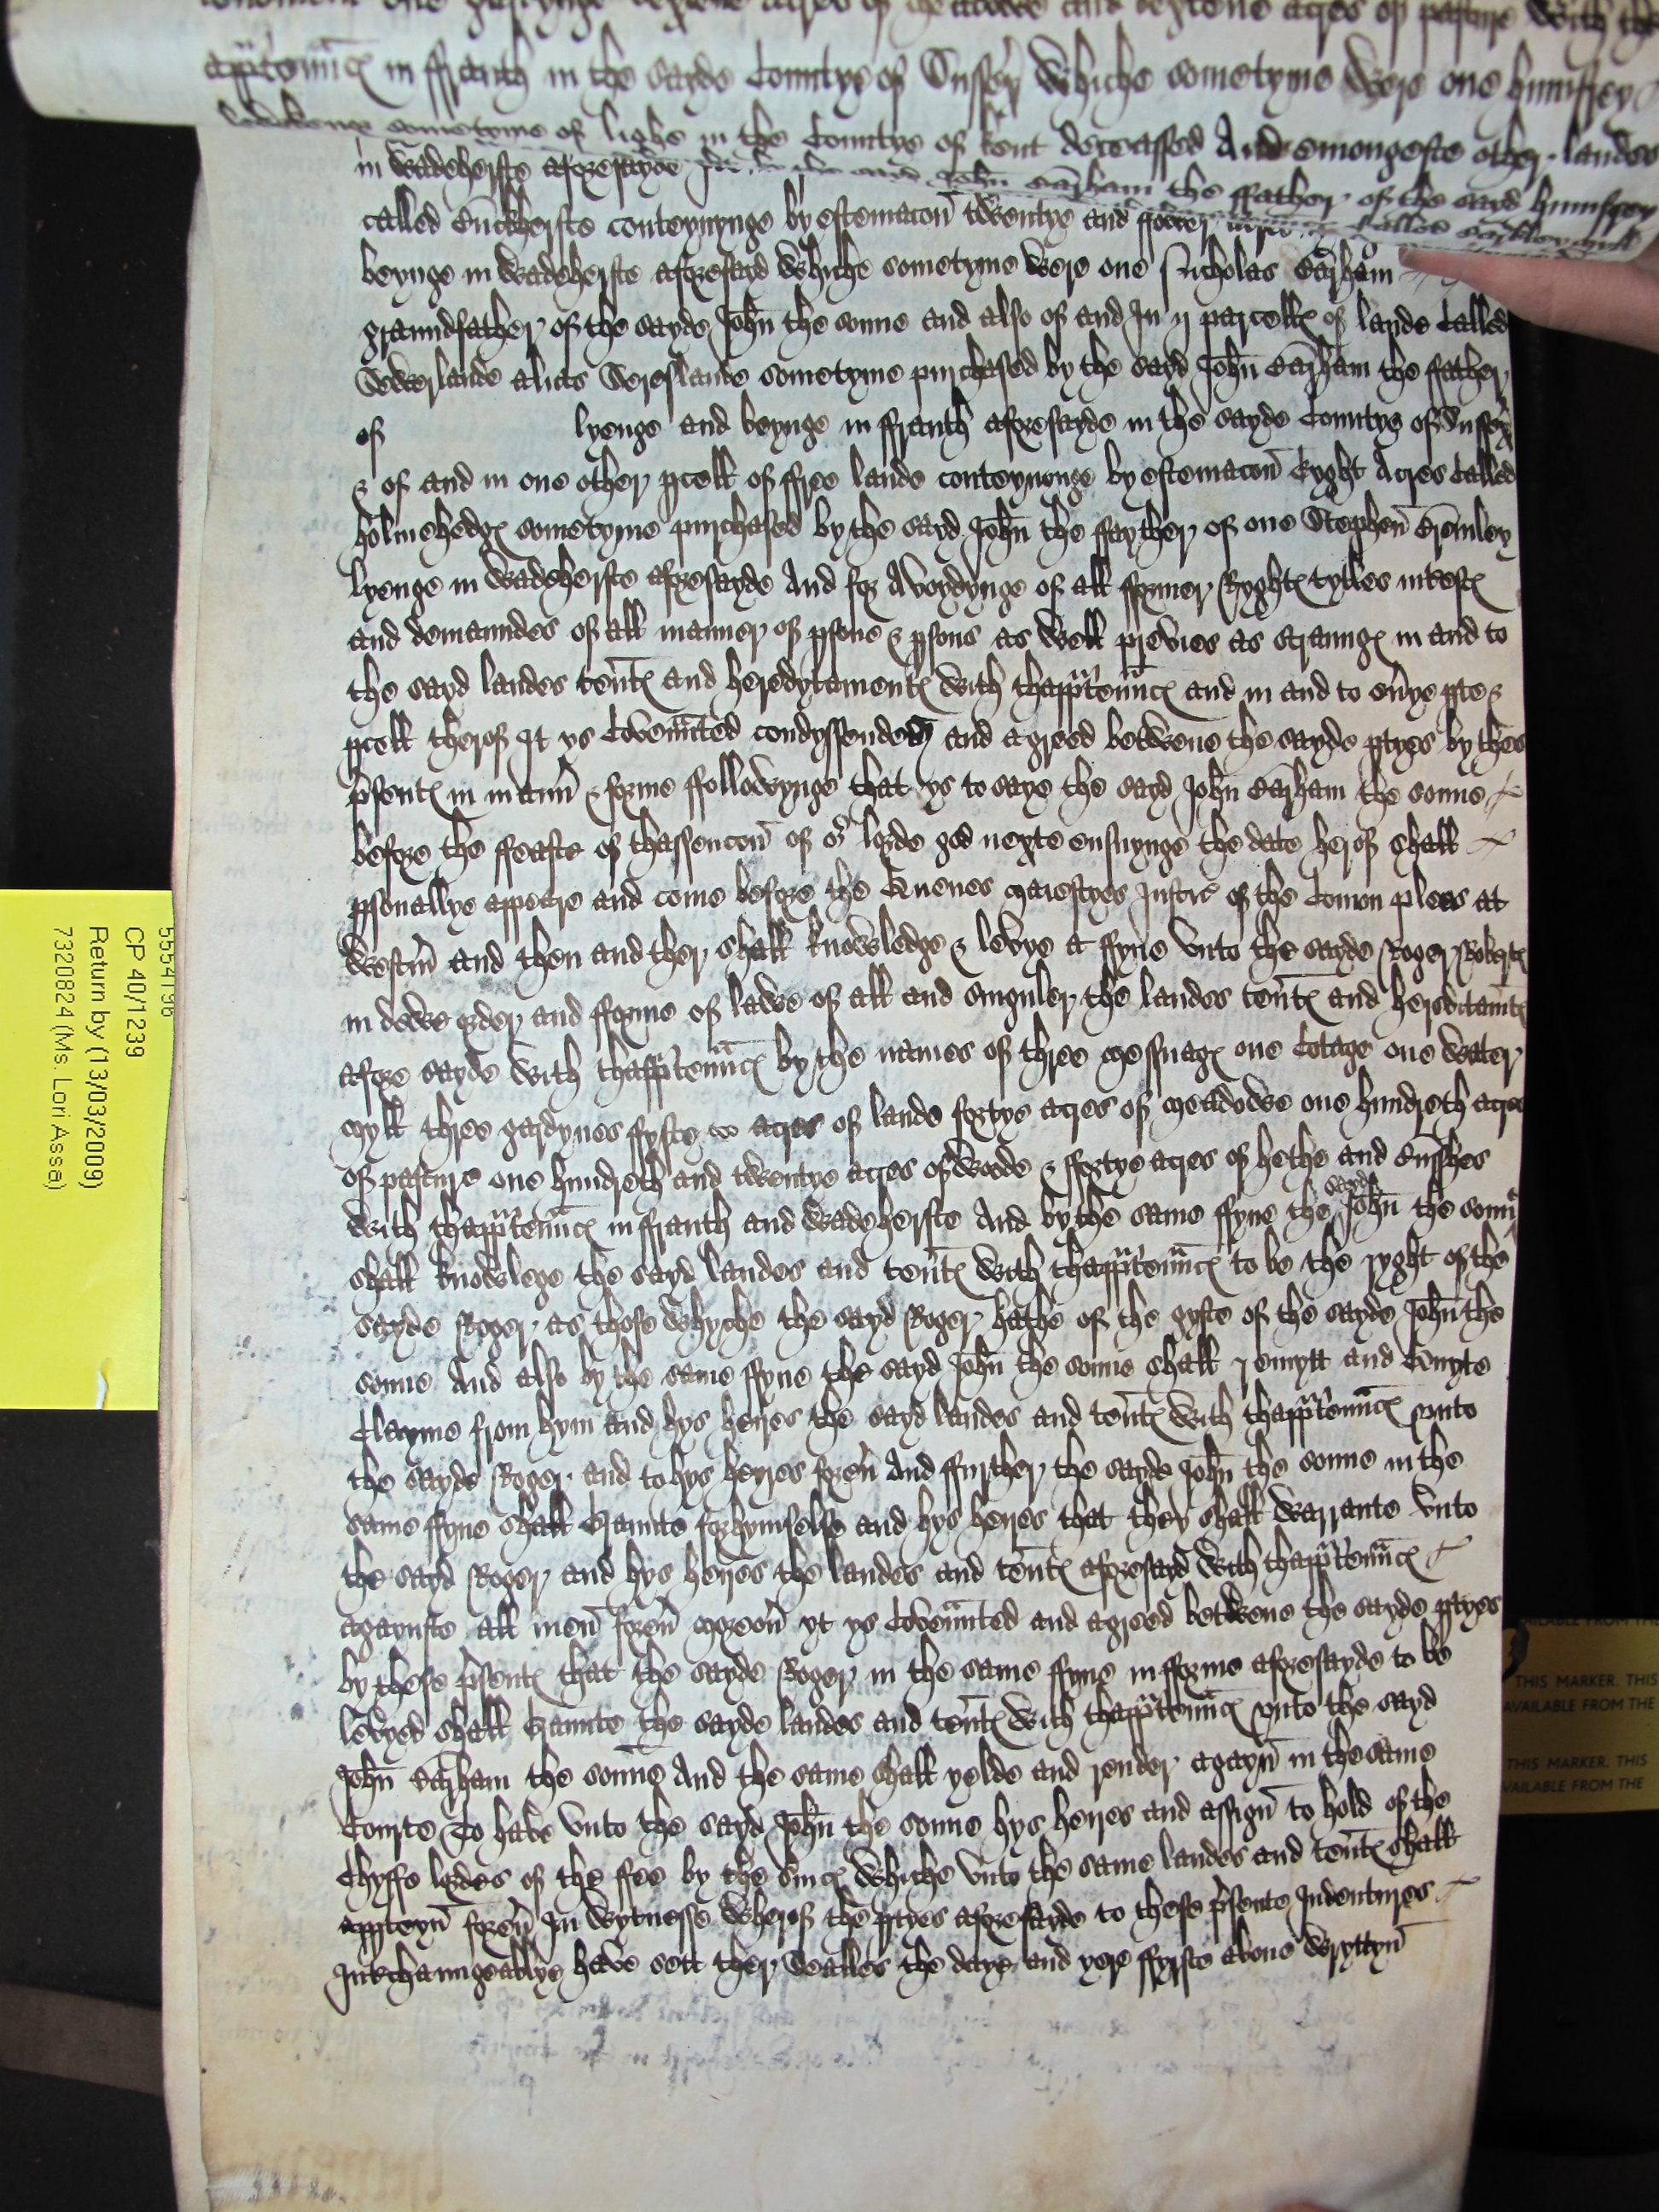 app'tennc in ffranth in the sayde Countye of Sussex Whiche sometyme were one humffrey
sometyme of lighe in the Countye of kent deceassed And emongeste other landes
in Wadeherste aforesayde John Barham the ffather of the said humfrey
called Buckherste conteynynge by estemacon twentye and ffower called
beynge in Wadeherste aforesayd Whiche sometyme were one Nicholas Barham
graundfather of the sayde John the sonne and also of and In ij parcells of lande Called
alias Sereslande sometyme purchased by the sayd John Barham the ffather
of lyenge and beynge in ffranth aforesayde in the sayde Countye of Sussex
& of and in one other pcell of ffree lande conteynenge by estemacon Eyght Acres Called
holmehedge sometyme purchased by the sayd John the ffayther of one Stephen Bromley
lyenge in Wadeherste aforesayde And for Avoydynge of all fformer Ryghts tytles intrests
and demaundes of all manner of psone & psons as well previes as straungs in and to
the sayd landes tents and heredytaments with thapp'tennc and in and to eu'ye pte &
pcell therof It ys Covennted condyssended and agreed betwene the sayde ptyes by thes
p'sents in mann' & forme ffollowynge that ys to saye the sayd John Barham the sonne
before the ffeaste of thassencon of o'r lorde god nexte ensuynge the date herof shall
psonallye appeare and come before the Quenes maiestyes Justic' of the Comon plees at
Westm' and then and ther shall knowledge & levye a ffyne vnto the sayde Roger Roberts
in dewe order and fforme of lawe of all and singuler the landes tents and hereditamts
afore sayde with thapp'tennc by the names of three messuags one Cotage one water
myll three gardynes ffyfte acres of lande fortye acres of meadowe one hundreth acres
of pasture one hundreth and twentye acres of woode & ffortye acres of hethe and Busshes
with thapp'tennc in ffranth and Wadeherste And by the same ffyne the sayd John the sonne
shall knowlege the sayd landes and tents with thapp'tennc to be the ryght of the
sayde Roger as those whyche the sayd Roger hathe of the gyfte of the sayde John the
sonne And also by the same ffyne the sayd John the sonne shall remytt and Quyte
Clayme from hym and hys heires the sayd landes and tents with thapp'tennc vnto
the sayde Roger and to hys heyres foreu' And ffurther the sayde John the sonne in the
same ffyne shall Graunte for hymselfe and hys heires that they shall warrante vnto
the sayd Roger and hys heires the landes and tents aforesayd with thapp'tennc
agaynste all men foreu' moreou' yt ys Covennted and agreed betwene the sayde ptyes
by these p'sents that the sayde Roger in the same ffyne in fforme aforesayde to be
levyed shall Graunte the sayde landes and tents with thapp'tennc vnto the sayd
John Barham the sonne And the same shall yelde and render agayn in the same
Courte To have vnto the sayd John the sonne hys heires and assign' to hold of the
Chyffe lordes of the ffee by the s'uic' whiche vnto the same landes and tents shall
appteyn foreu' In wytnesse wherof the ptyes aforesayde to these p'sente Indentures
Interchaungeablye have sett ther Sealles the daye and yere ffyrste aboue wryttyn
5554196
CP 40/1239
Return by (13/03/2009)
7320824 (Ms. Lori Asse)
AVAILABLE FROM THE
THIS MARKER. THIS
AVAILABLE FROM THE
THIS MARKER. THIS
AVAILABLE FROM THE